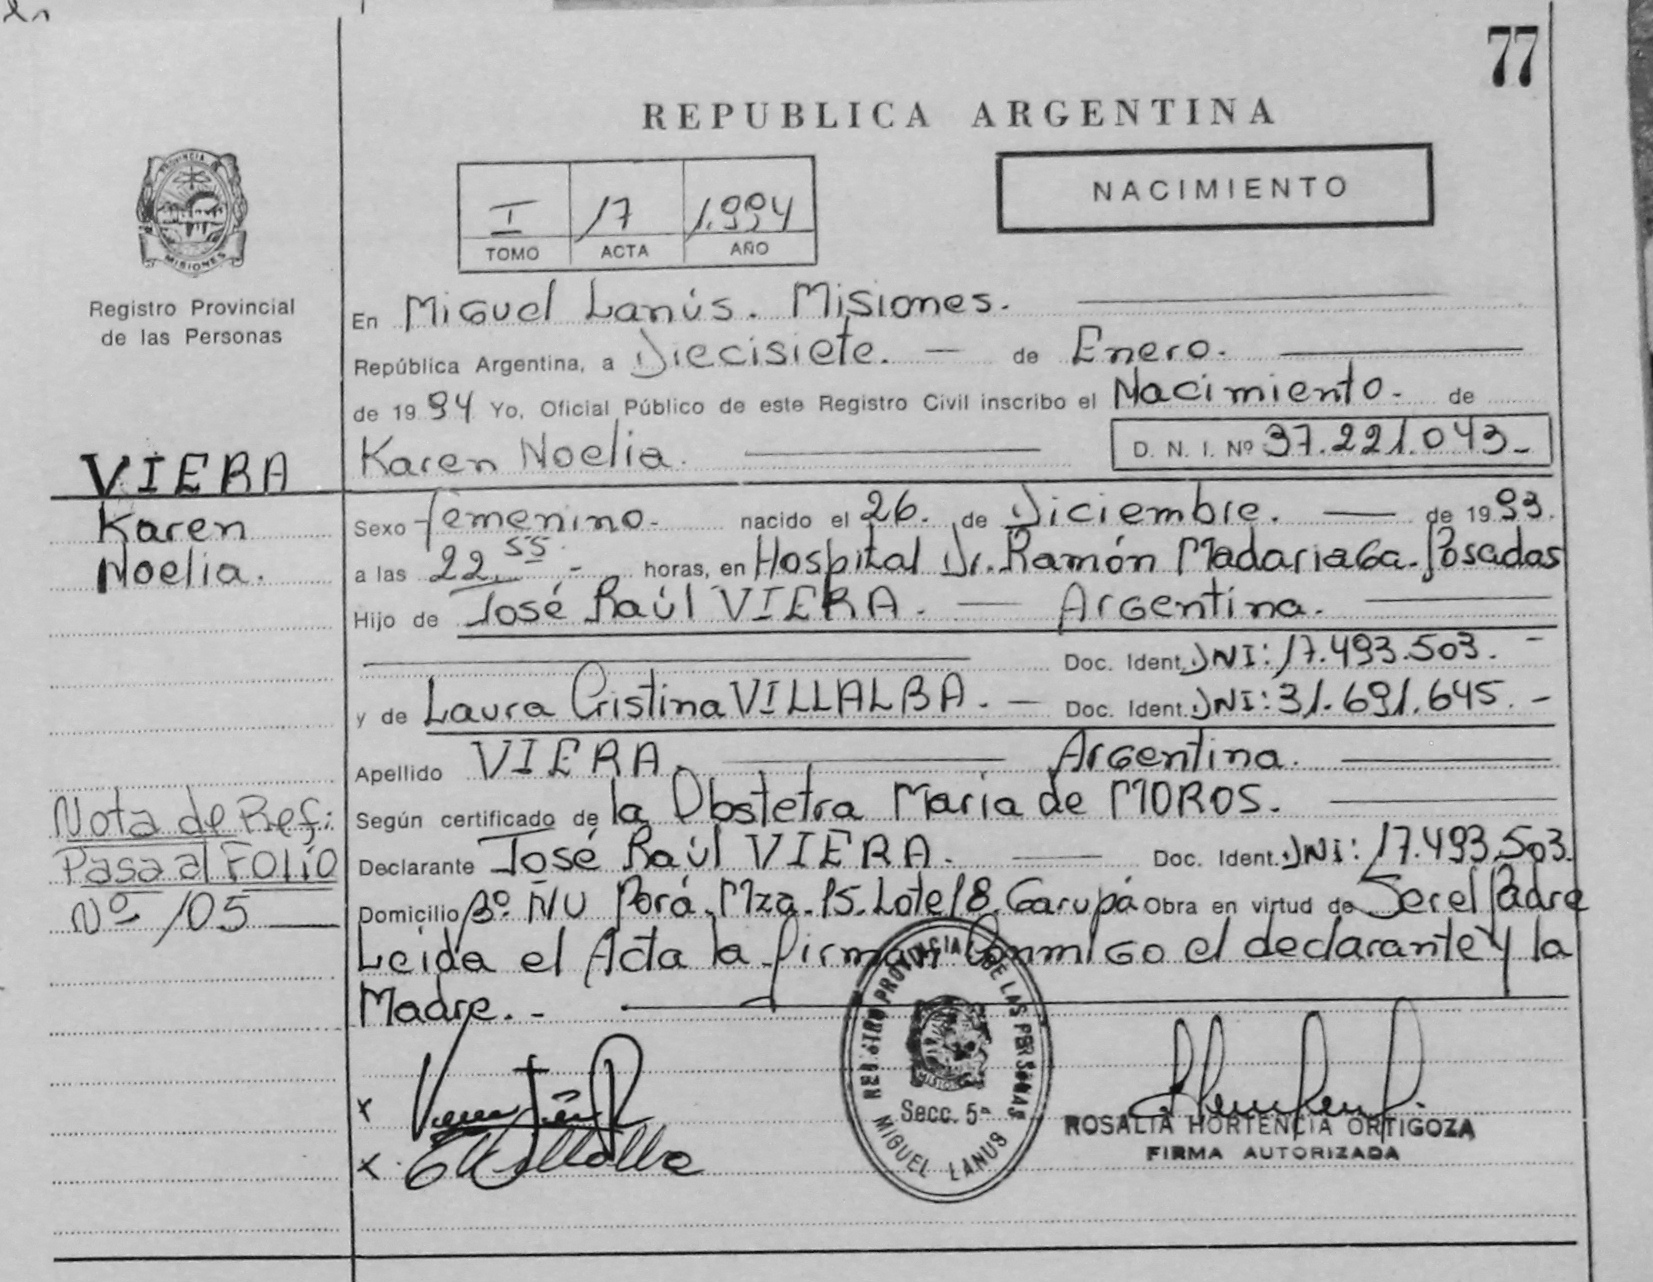 77
REPUBLICA ARGENTINA
NACIMIENTO
I 17 1.994
TOMO ACTA AÑO
PROVINCIA DE
MISIONES
Registro Provincial
de las Personas
En Miguel Lanús. Misiones.
República Argentina, a Diecisiete. — de Enero.
de 1994 Yo, Oficial Público de este Registro Civil inscribo el Nacimiento. de
Karen Noelia. D. N. I. Nº 37.221.043.-
VIERA
Karen
Noelia.
Sexo femenino. nacido el 26. de Diciembre. — de 1993.
a las 22.55.- horas, en Hospital Dr. Ramón Madariaga. Posadas
Hijo de José Raúl VIERA. — Argentina.
Doc. Ident. DNI: 17.493.503. -
y de Laura Cristina VILLALBA. — Doc. Ident. DNI: 31.691.645. -
Apellido VIERA. Argentina.
Según certificado de la Obstetra María de MOROS.
Declarante José Raúl VIERA. — Doc. Ident. DNI: 17.493.503.
Domicilio Bº. ÑU Porá. Mza. 15. Lote 18. Garupá Obra en virtud de Ser el Padre
Leida el Acta la firman Conmigo el declarante y la
Madre. -
Nota de Ref.:
Pasa al FOLIO
Nº 105
x
x
REGISTRO PROVINCIAL DE LAS PERSONAS
Secc. 5ª
MIGUEL LANUS
ROSALIA HORTENCIA ORTIGOZA
FIRMA AUTORIZADA